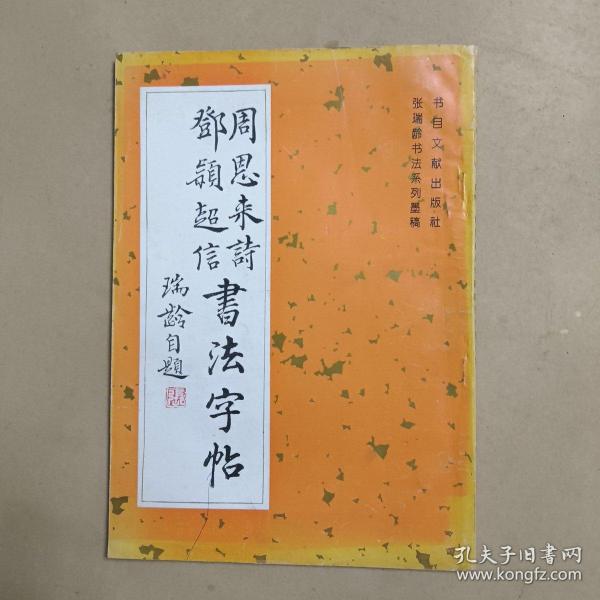 书目文献出版社
张瑞龄书法系列墨稿
周恩来詩
鄧穎超信
書法字帖
瑞齡自題
孔夫子旧书网
www.kongfz.com